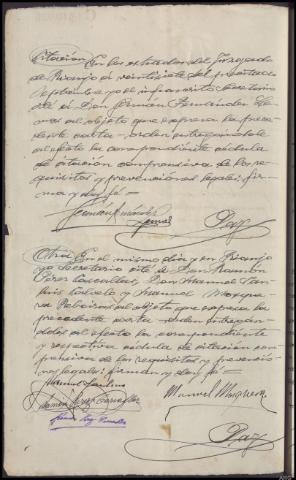 Citación En los estrados del Juzgado
de Rianjo á veintisiete del precitado
Septiembre yo el infrascrito Secretario
cité á Don Germán Fernández
al objeto que expresa la prece-
dente carta-orden entregandole
al efecto la correspondiente cédula
de citación comprensiva de los re-
quisitos y prevenciones legales; fir-
ma y doy fé=
Otra En el mismo dia y en Rianjo
yo Secretario cité á Don Ramón
Don Manuel
y Manuel Mosque-
ra al objeto que expresa la
precedente carta orden entregan-
doles al efecto la correspondiente
y respectiva cédula de citación com-
prensiva de los requisitos y prevencio-
nes legales; firman y doy fé=
Manuel
Manuel Mosquera
Ramón